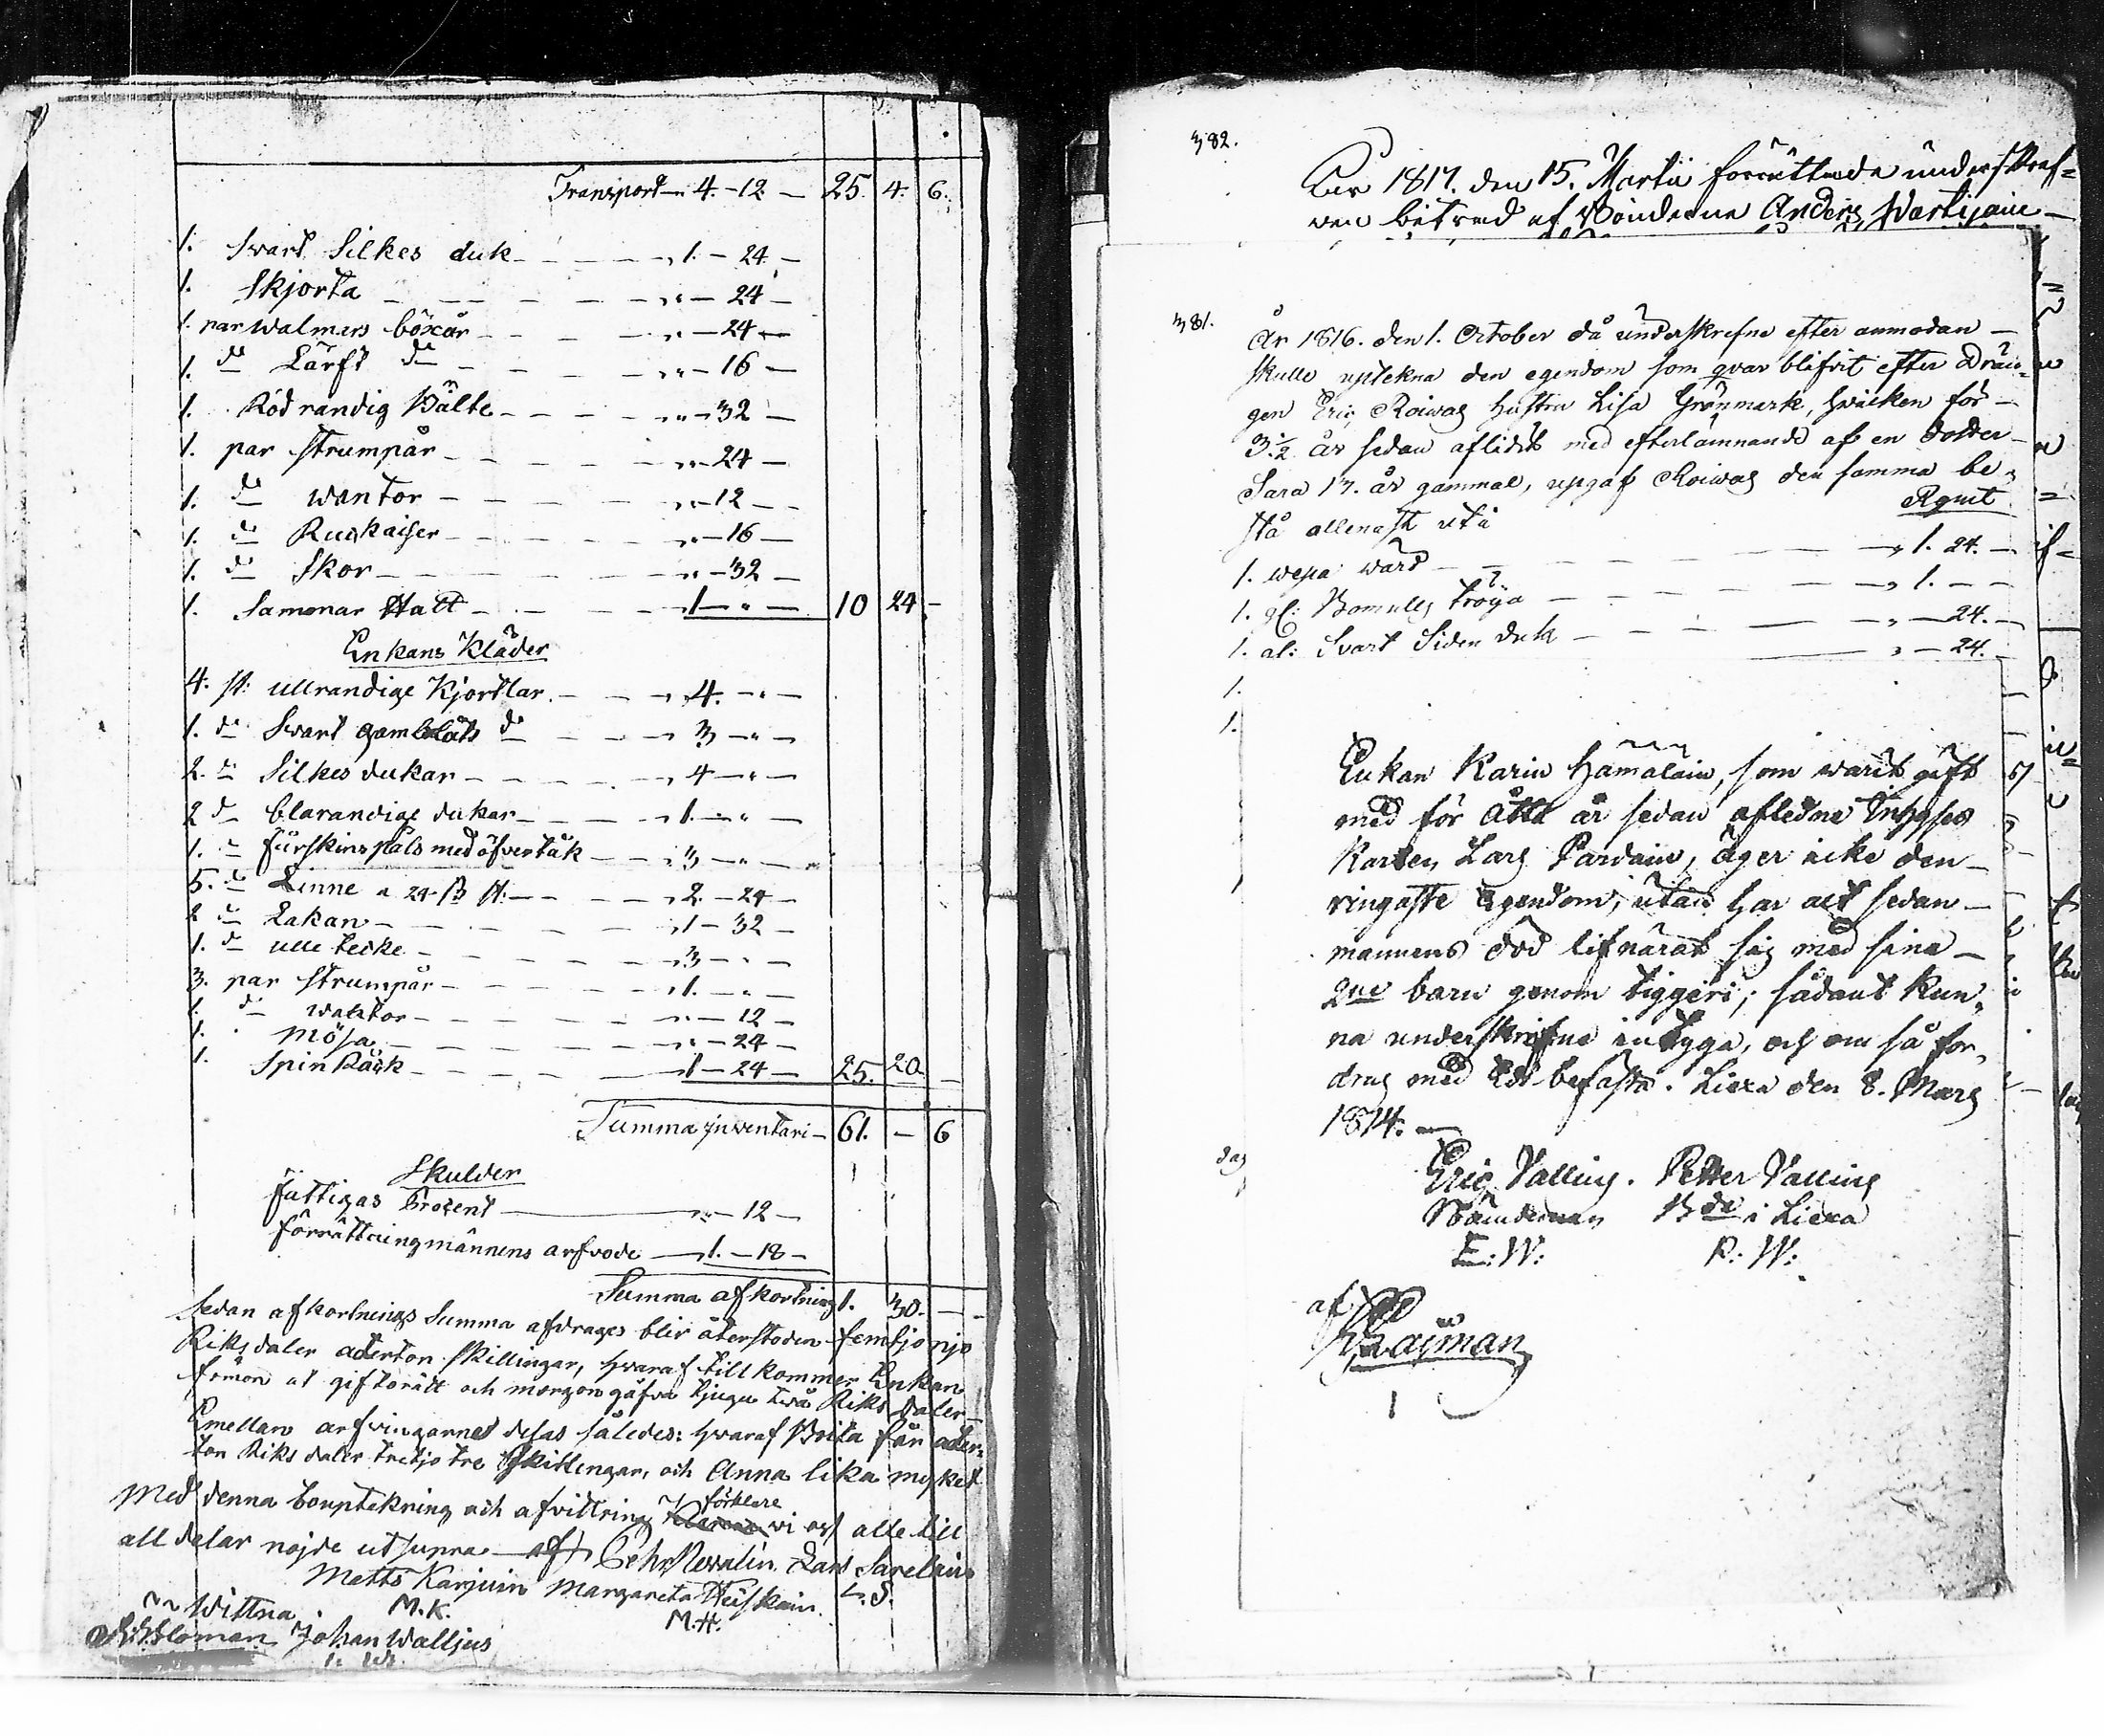 Transport - 4. - 12. - 25. 4. 6.
1. Svart Silkes duk - - - - „ 1. - 24. -
1. Skjorta - - - - „ „ - 24 -
1. par walmars böxår - - - „ - 24 -
1. do Lärft do - - - - „ „ - 16 -
1. Röd randig Bälte - - - - „ „ - 32 -
1. par strumpår - - - - „ „ - 24 -
1. do wantor - - - - „ „ - 12 - -
1. do - - - - „ - 16 -
1. do Skor - - - - „ - 32 -
1. Hatt - - - - 1 - „ - 10 24 -
Enkans Kläder
4. st: ullrandige Kjortlar. - - - „ 4. - „ -
1. do Svart do - - - „ 3 - „ -
2. do Silkes dukar - - - - „ 4 - „ -
2 do blarandige dukar - - - - „ 1. - „ -
1. - fårskins päls med öfvertåk - - „ 3 - „ -
5. do Linne a 24 ß st: - - - „ 2. - 24 -
2 do Lakan - - - - - „ 1 - 32 -
1. do ulle tecke - - - - - „ 3 - „ -
3. par strumpår - - - - „ 1. - „ -
1. do wantor - - - - „ - 12 -
1. Mösa - - - - „ - 24 -
1. Spin Råck - - - - 1 - 24 - 25. 20. -
Summa inventari - 61. - 6
Skulder
fattigas Procent - „ - 12 -
förrättningmännens arfvode - „ 1. - 18 -
Summa afkortning 1. 30. -
sedan afkortnings Summa afdrages blir återstoden femtjo njo
Riksdaler aderton Skillingar, hvaraf tillkommer Enkan
förmon at giftorätt och morgongåfva tjugu två Riks daler -
Emellan arfvingarnes delas således: hvaraf Brita får ader=
ton Riks daler tretjo tre Skillingar, och Anna lika myket
Med denna bouptekning och afvittring förklare vi oss alle till
all delar nöjde ut supra Pehr Lars
Matts Karjuin Margareta
M.K. M.H. L.S.
Wittna
Johan Walljus
382.
Åar 1817. den 15. Martii förrättade underskref=
ven biträd af Bönderne Anders
381. År 1816. den 1. October då underskrefne efter anmodan -
skulle uptekna den egendom som qvar blifvit efter Drän=
gen Eric Roivas hustru Lisa Grönmark, hvilken för -
3 1/2 år sedan aflidit med efterlämnande af en dotter -
Sara 17. år gammal, upgaf Roivas den samma be=
stå allenast utå Rgmt
1. wepa ward - - - - „ 1. 24. -
1. gl: Bomulls tröya - - - - „ 1. - -
1. al: Svart Siden duk - - - - „ - 24. -
„ - 24. -
1.
1.
Enkan Karin Hämäläin, som warit gift
med för åtta år sedan afledne Inhyses
Karlen Lars Pardain, äger icke den -
ringaste Egendom, utan har alt sedan -
mannens död lifnärat sig med sina -
2ne barn genom tiggeri; sådant Kun=
na underskrifne intyga, och om så for=
dras med Ed befästa. Liexa den 8. Mars
1814. -
Eric Valling. Petter Valling
Nämdeman Bde i Liexa
E: W: P: W: